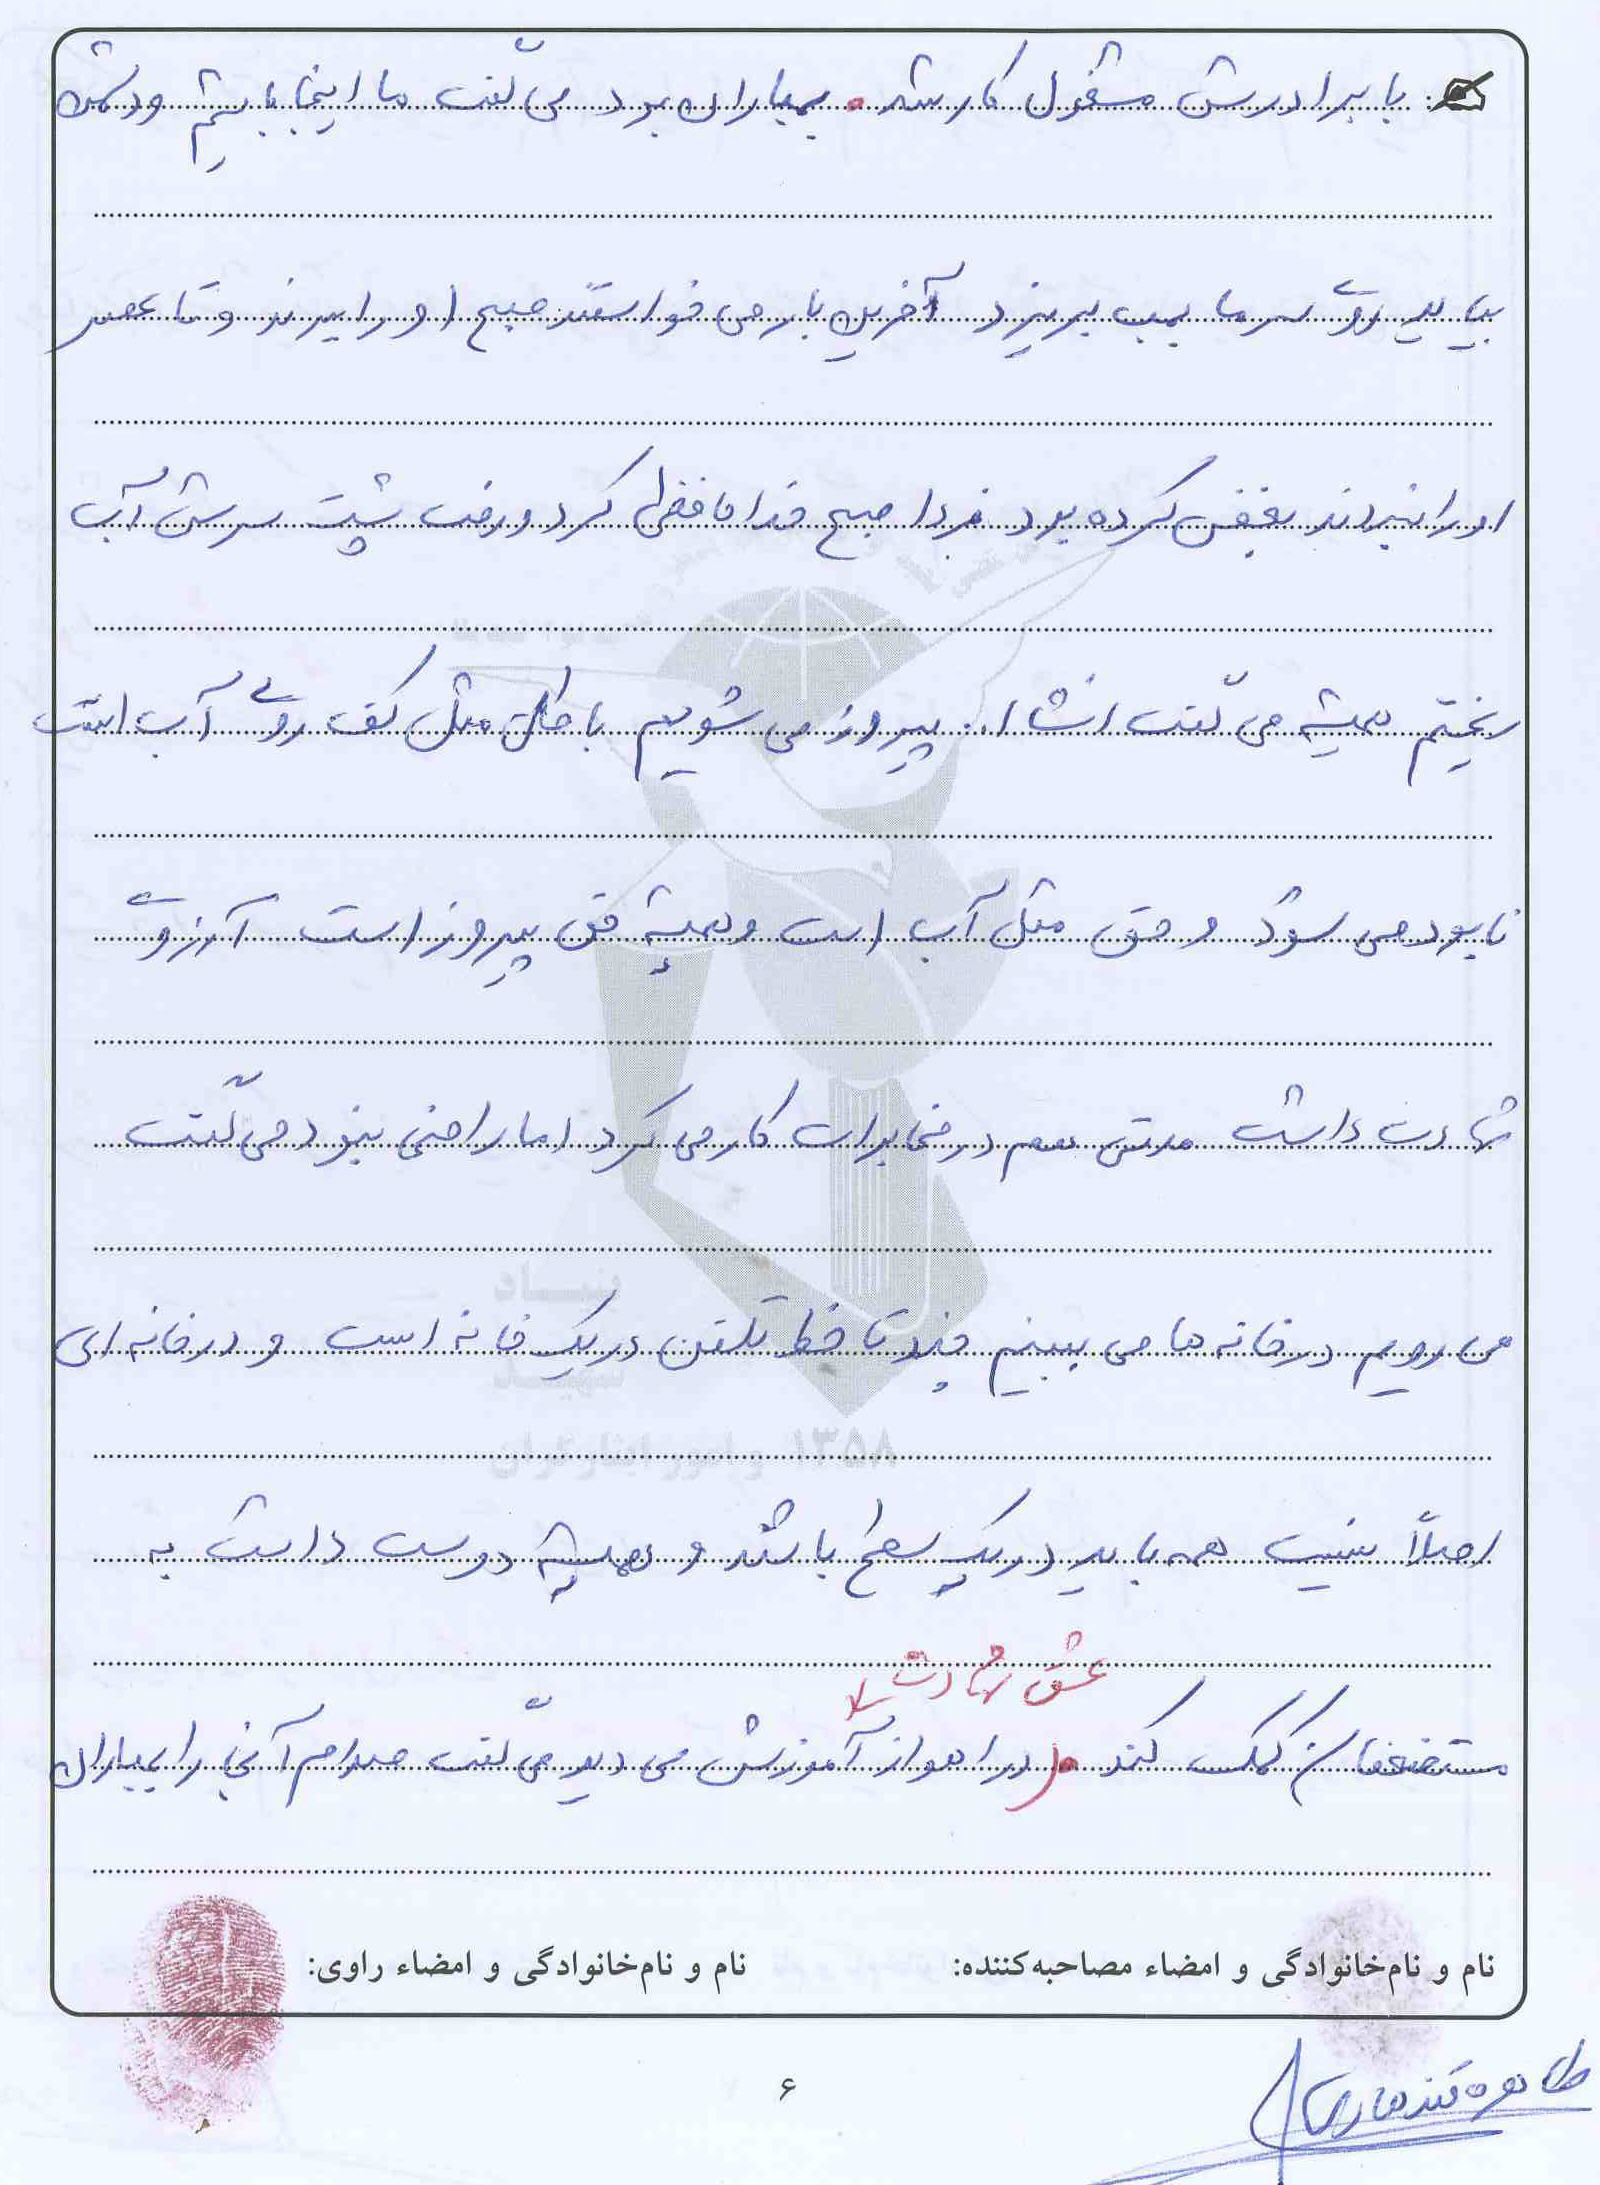 با برادرش مشغول کار شد. بمباران بود می گفت ما اینجا باشیم و دشمن
بیاید روی سر ما بمب بریزد آخرین بار می خواستند صبح او را ببرند و تا عصر
او را نبردند بغض کرده بود فردا صبح خداحافظی کرد و رفت پشت سرش آب
ریختم همیشه می گفت انشاا... پیروز می شویم باطل مثل کف روی آب است
نابود می شود و حق مثل آب است و همیشه حق پیروز است آرزوی
شهادت داشت مدتی هم در مخابرات کار می کرد اما راضی نبود می گفت
می رویم در خانه ها می بینیم چند تا خط تلفن در یک خانه است و در خانه ای
اصلاً نیست همه باید در یک سطح باشند و همیشه دوست داشت به
عشق شهادت
مستضعفان کمک کند. در اهواز آموزش می دید می گفت صدام آنجا را بمباران
نام و نام‌خانوادگی و امضاء مصاحبه‌کننده: نام و نام‌خانوادگی و امضاء راوی:
۶
طاهره قندهاری
بنیاد
شهید
و امور ایثارگران ۱۳۵۸